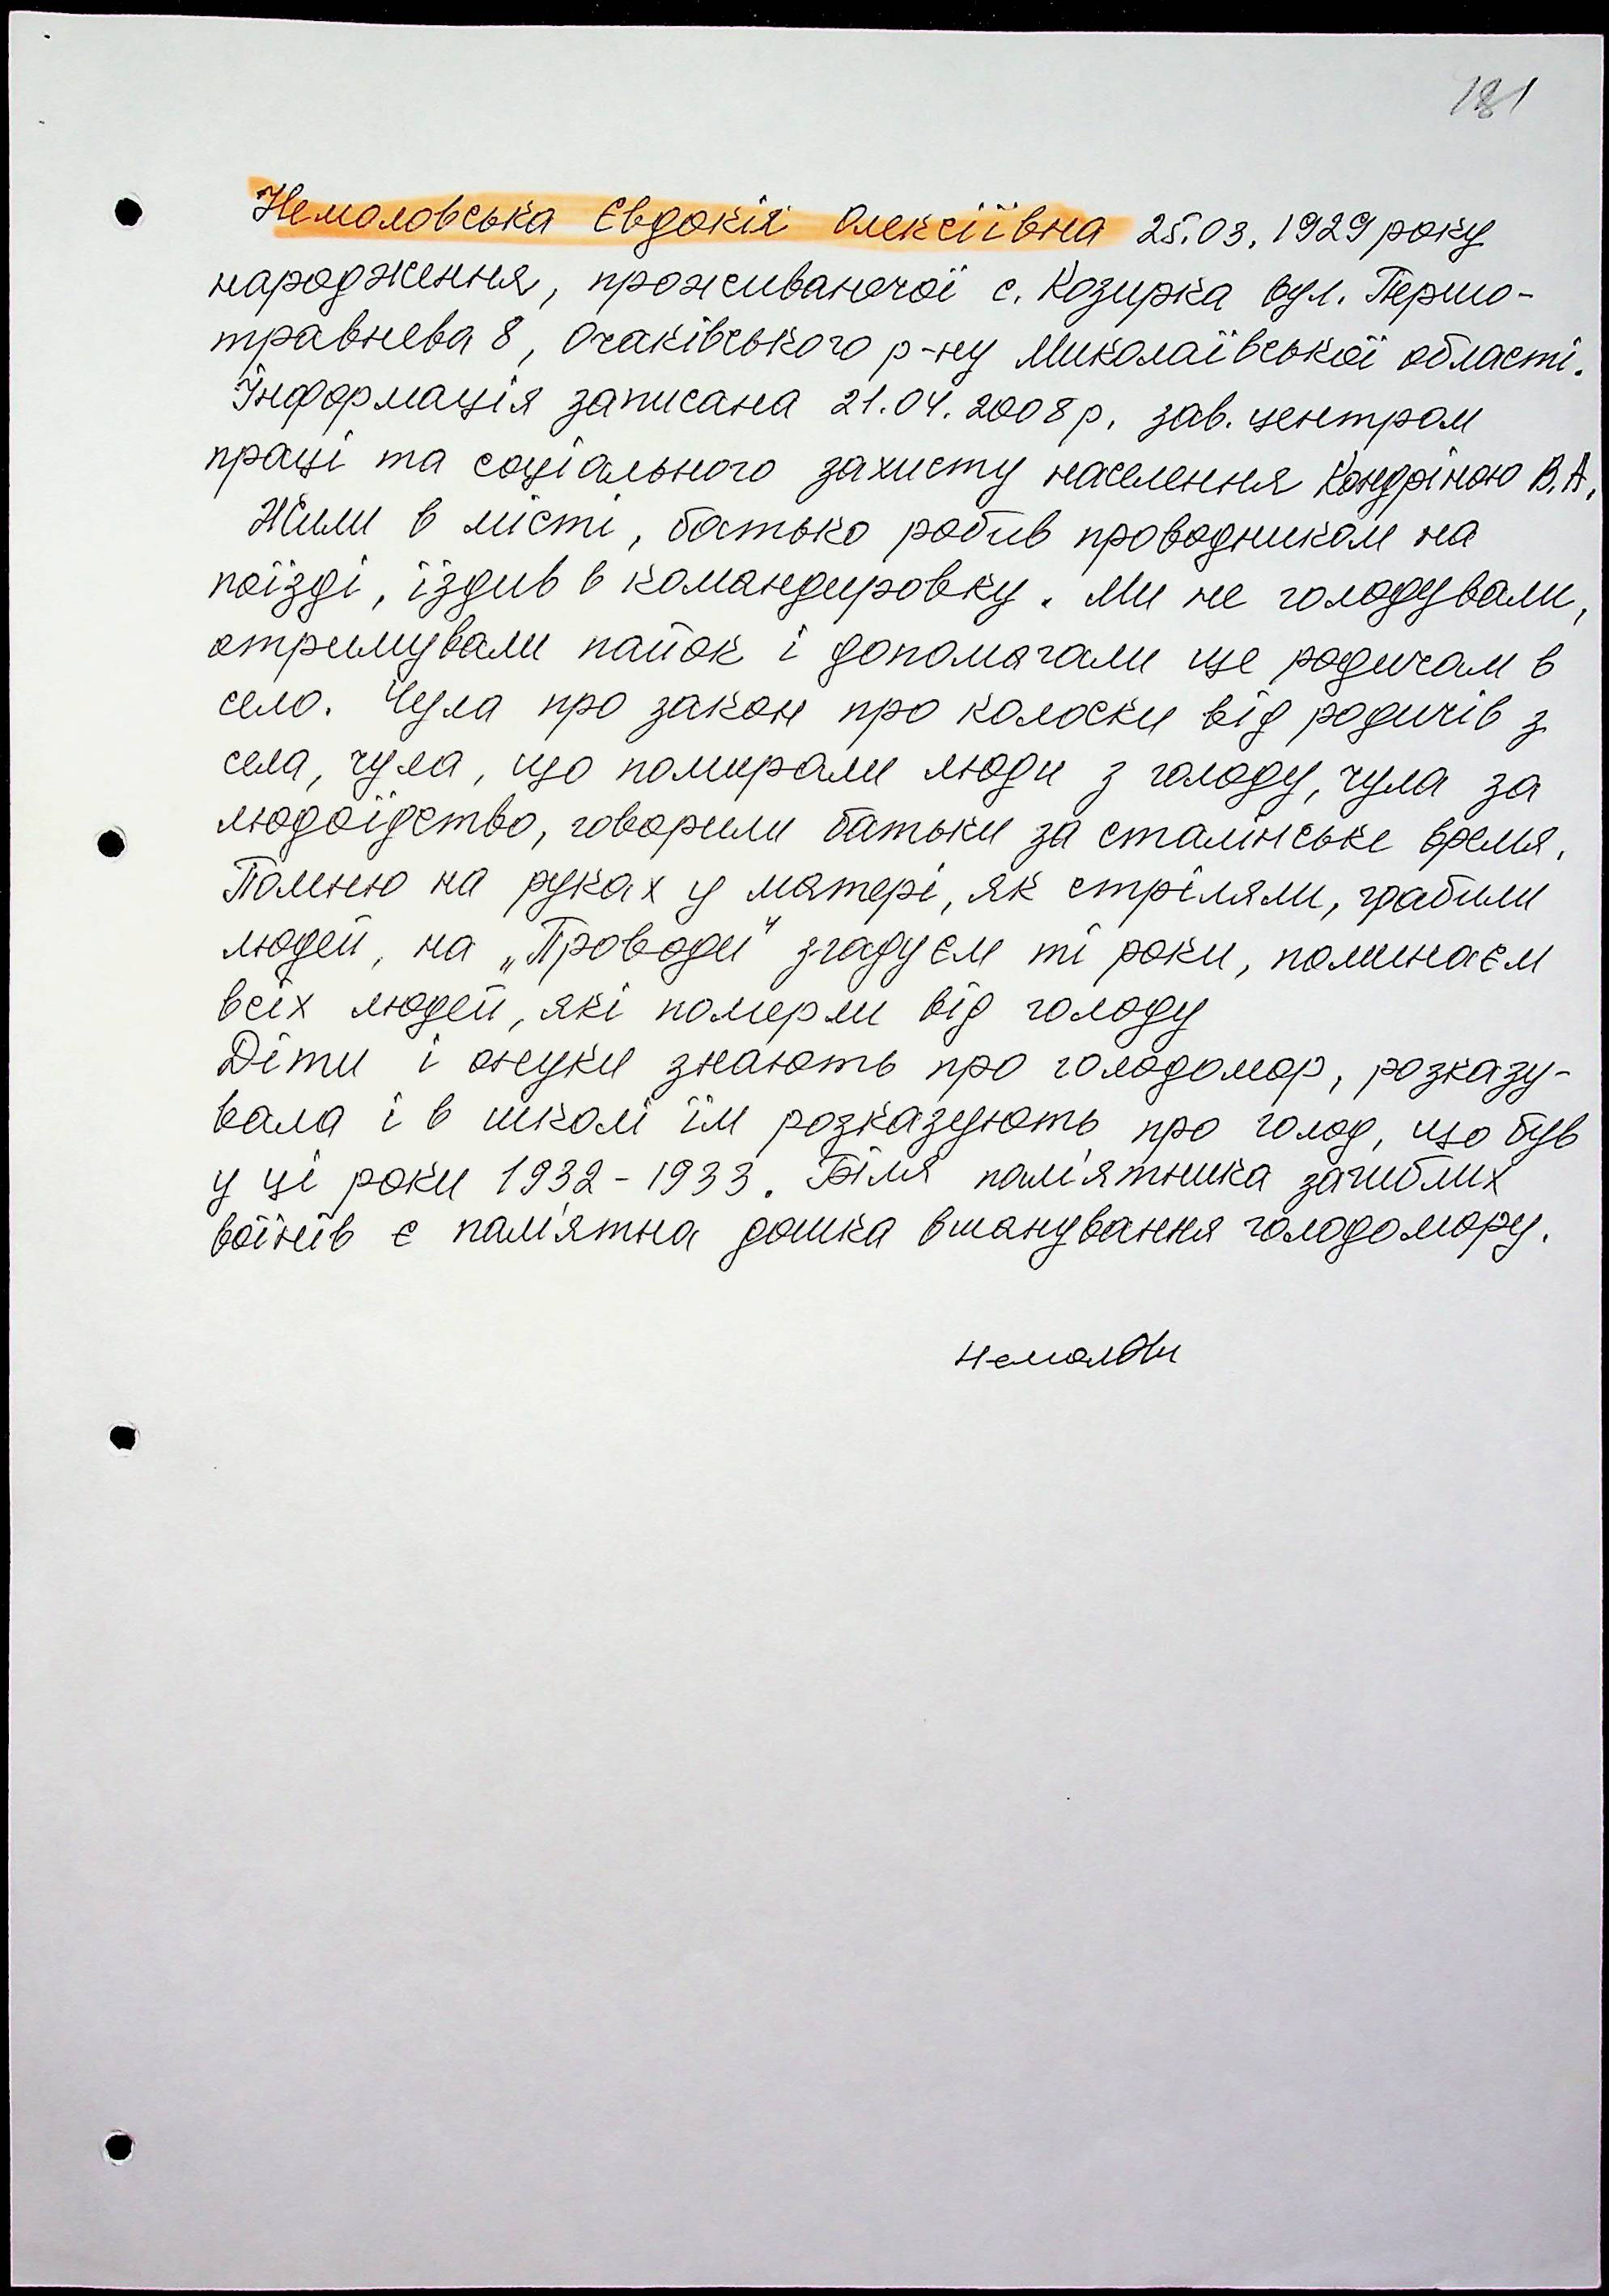 181
Немоловська Євдокія Олексіївна 25.03.1929 року
народження, проживаючої с. Козирка вул. Першо-
травнева 8, Очаківського р-ну Миколаївської області.
Інформація записана 21.04.2008 р. зав. центром
праці та соціального захисту населення Кондріною В.А.
Жили в місті, батько робив проводником на
поїзді, їздив в командировку. Ми не голодували,
отримували пайок і допомагали ще родичам в
село. Чула про закон про колоски від родичів з
села, чула, що помирали люди з голоду, чула за
людоїдство, говорили батьки за сталінське время.
Помню на руках у матері, як стріляли, грабили
людей, на „Проводи" згадуєм ті роки, поминаєм
всіх людей, які померли від голоду
Діти і онуки знають про голодомор, розказу-
вала і в школі їм розказують про голод, що був
у ці роки 1932-1933. Біля пам'ятника загиблих
воїнів є пам'ятна дошка вшанування голодомору.